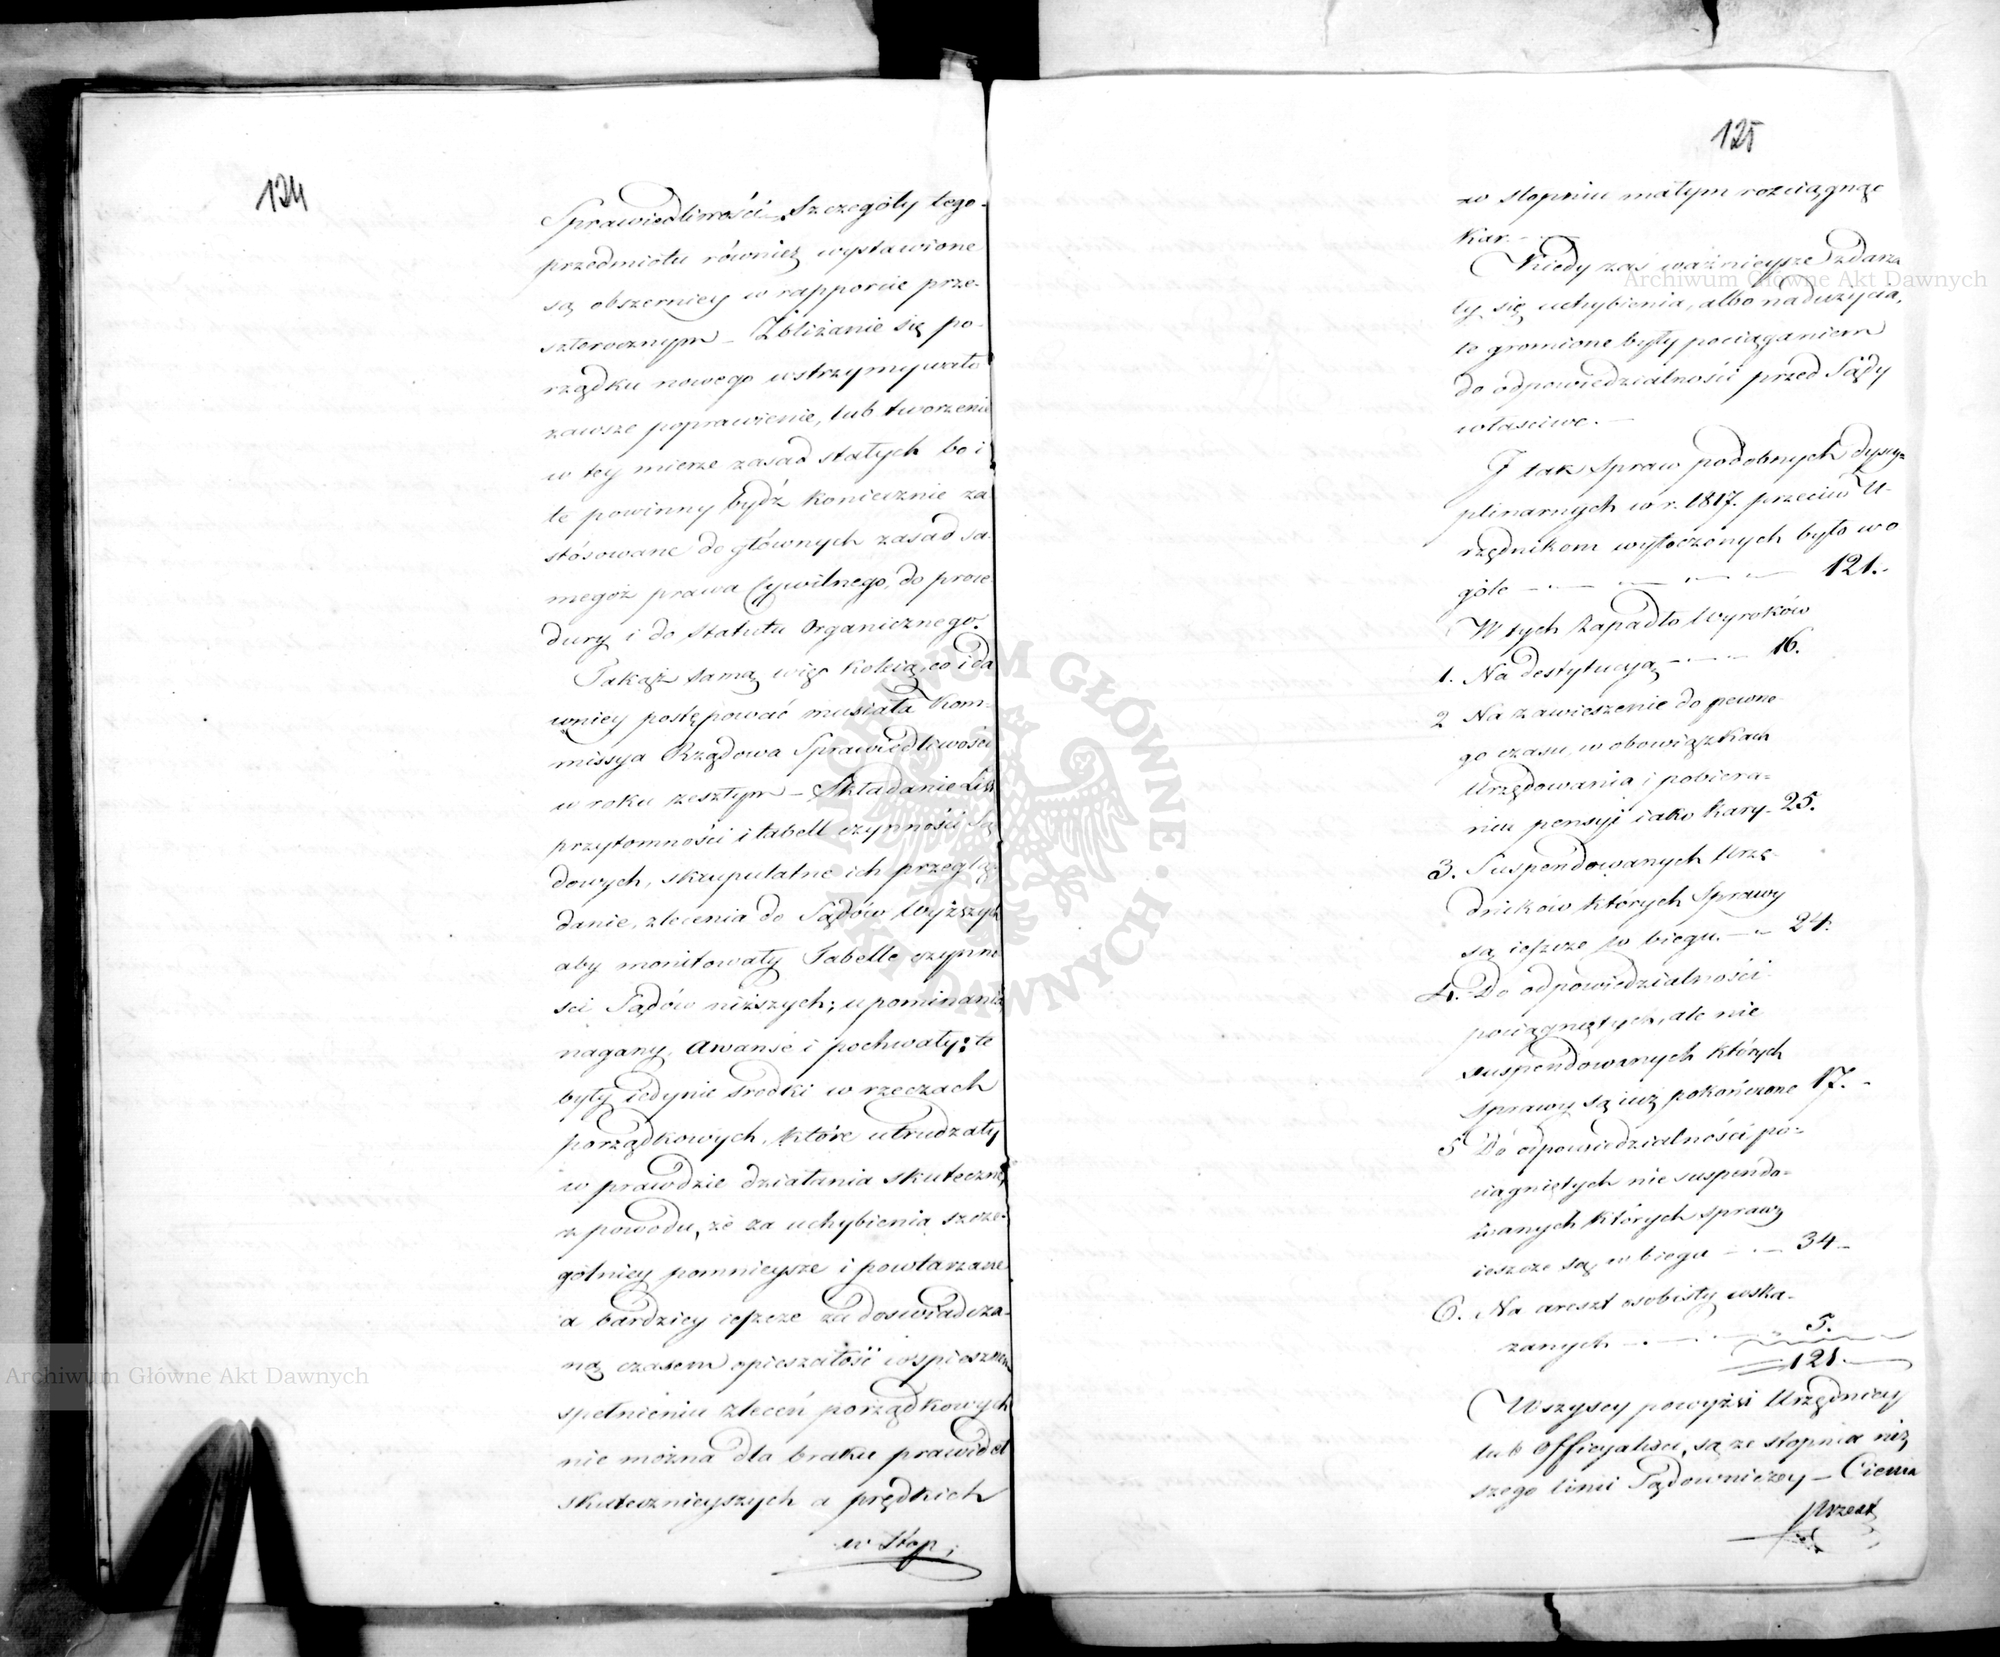 124
Sprawiedliwości. Szczegóły tego
przedmiotu również wystawione
są obszerniey w rapporcie prze-
szłorocznym – Zbliżanie się po-
rządku nowego wstrzymywało
zawsze poprawienie, lub tworzenie
w tey mierze zasad stałych bo i
te powinny bydź koniecznie za
stósowane do głównych zasad sa-
megoż prawa Cywilnego, do proce-
dury i do Statutu Organicznego.
Takąż samą więc koleią, co i da
wniey postępować musiała Kom-
missya Rządowa Sprawiedliwości
w roku zeszłym – Składanie List
przytomności i tabell czynności Są
dowych, skrupulatne ich przeglą-
danie, zlecenia do Sądów Wyższych
aby monitowały Tabelle czynno
ści Sądów niższych; upominania
nagany, awanse i pochwały: te
były iedynie srodki w rzeczach
porządkowych, które utrudzały
w prawdzie działania skuteczne,
z powodu, że za uchybienia szcze-
gólniey pomnieysze i powtarzane
a bardziey ieszcze za doswiadcza-
ną czasem opieszałość w spiesznem
spełnieniu zleceń porządkowych
nie można dla braku prawideł
skutecznieyszych a prędkich
w stop;
125
w stopniu małym rozciągnąć
kar. –
Kiedy zaś ważnieysze zdarza
ły się uchybienia, albo nadużycia,
te gromione były pociąganiem
do odpowiedzialności przed Sądy
właściwe. –
I tak Spraw podobnych dyscy=
plinarnych w r. 1817. przeciw U-
rzędnikom wytoczonych było w o
góle – – – – – 121.
W tych zapadło Wyroków
1. Na destytucyą – – – 16.
2 Na zawieszenie do pewne-
go czasu, w obowiązkach
Urzędowania i pobiera=
niu pensyi iako kary – 25.
3. Suspendowanych Urzę-
dników których Sprawy
są ieszcze w biegu. – – 24.
4. Do odpowiedzialności
pociągniętych, ale nie
suspendowanych których
sprawy są iuż pokończone 17. –
5 Do odpowiedzialności po=
ciągniętych nie suspendo=
wanych których sprawy
ieszcze są w biegu – – 34 –
6. Na areszt osobisty wska-
zanych – – – 5.
121.
Wszyscy powyżsi Urzędnicy
lub Officyaliści, są ze stopnia niż
szego linii Sądowniczey –
przeał
Archiwum Główne Akt Dawnych
Archiwum Główne Akt Dawnych
ARCHIWUM GŁÓWNE AKT DAWNYCH